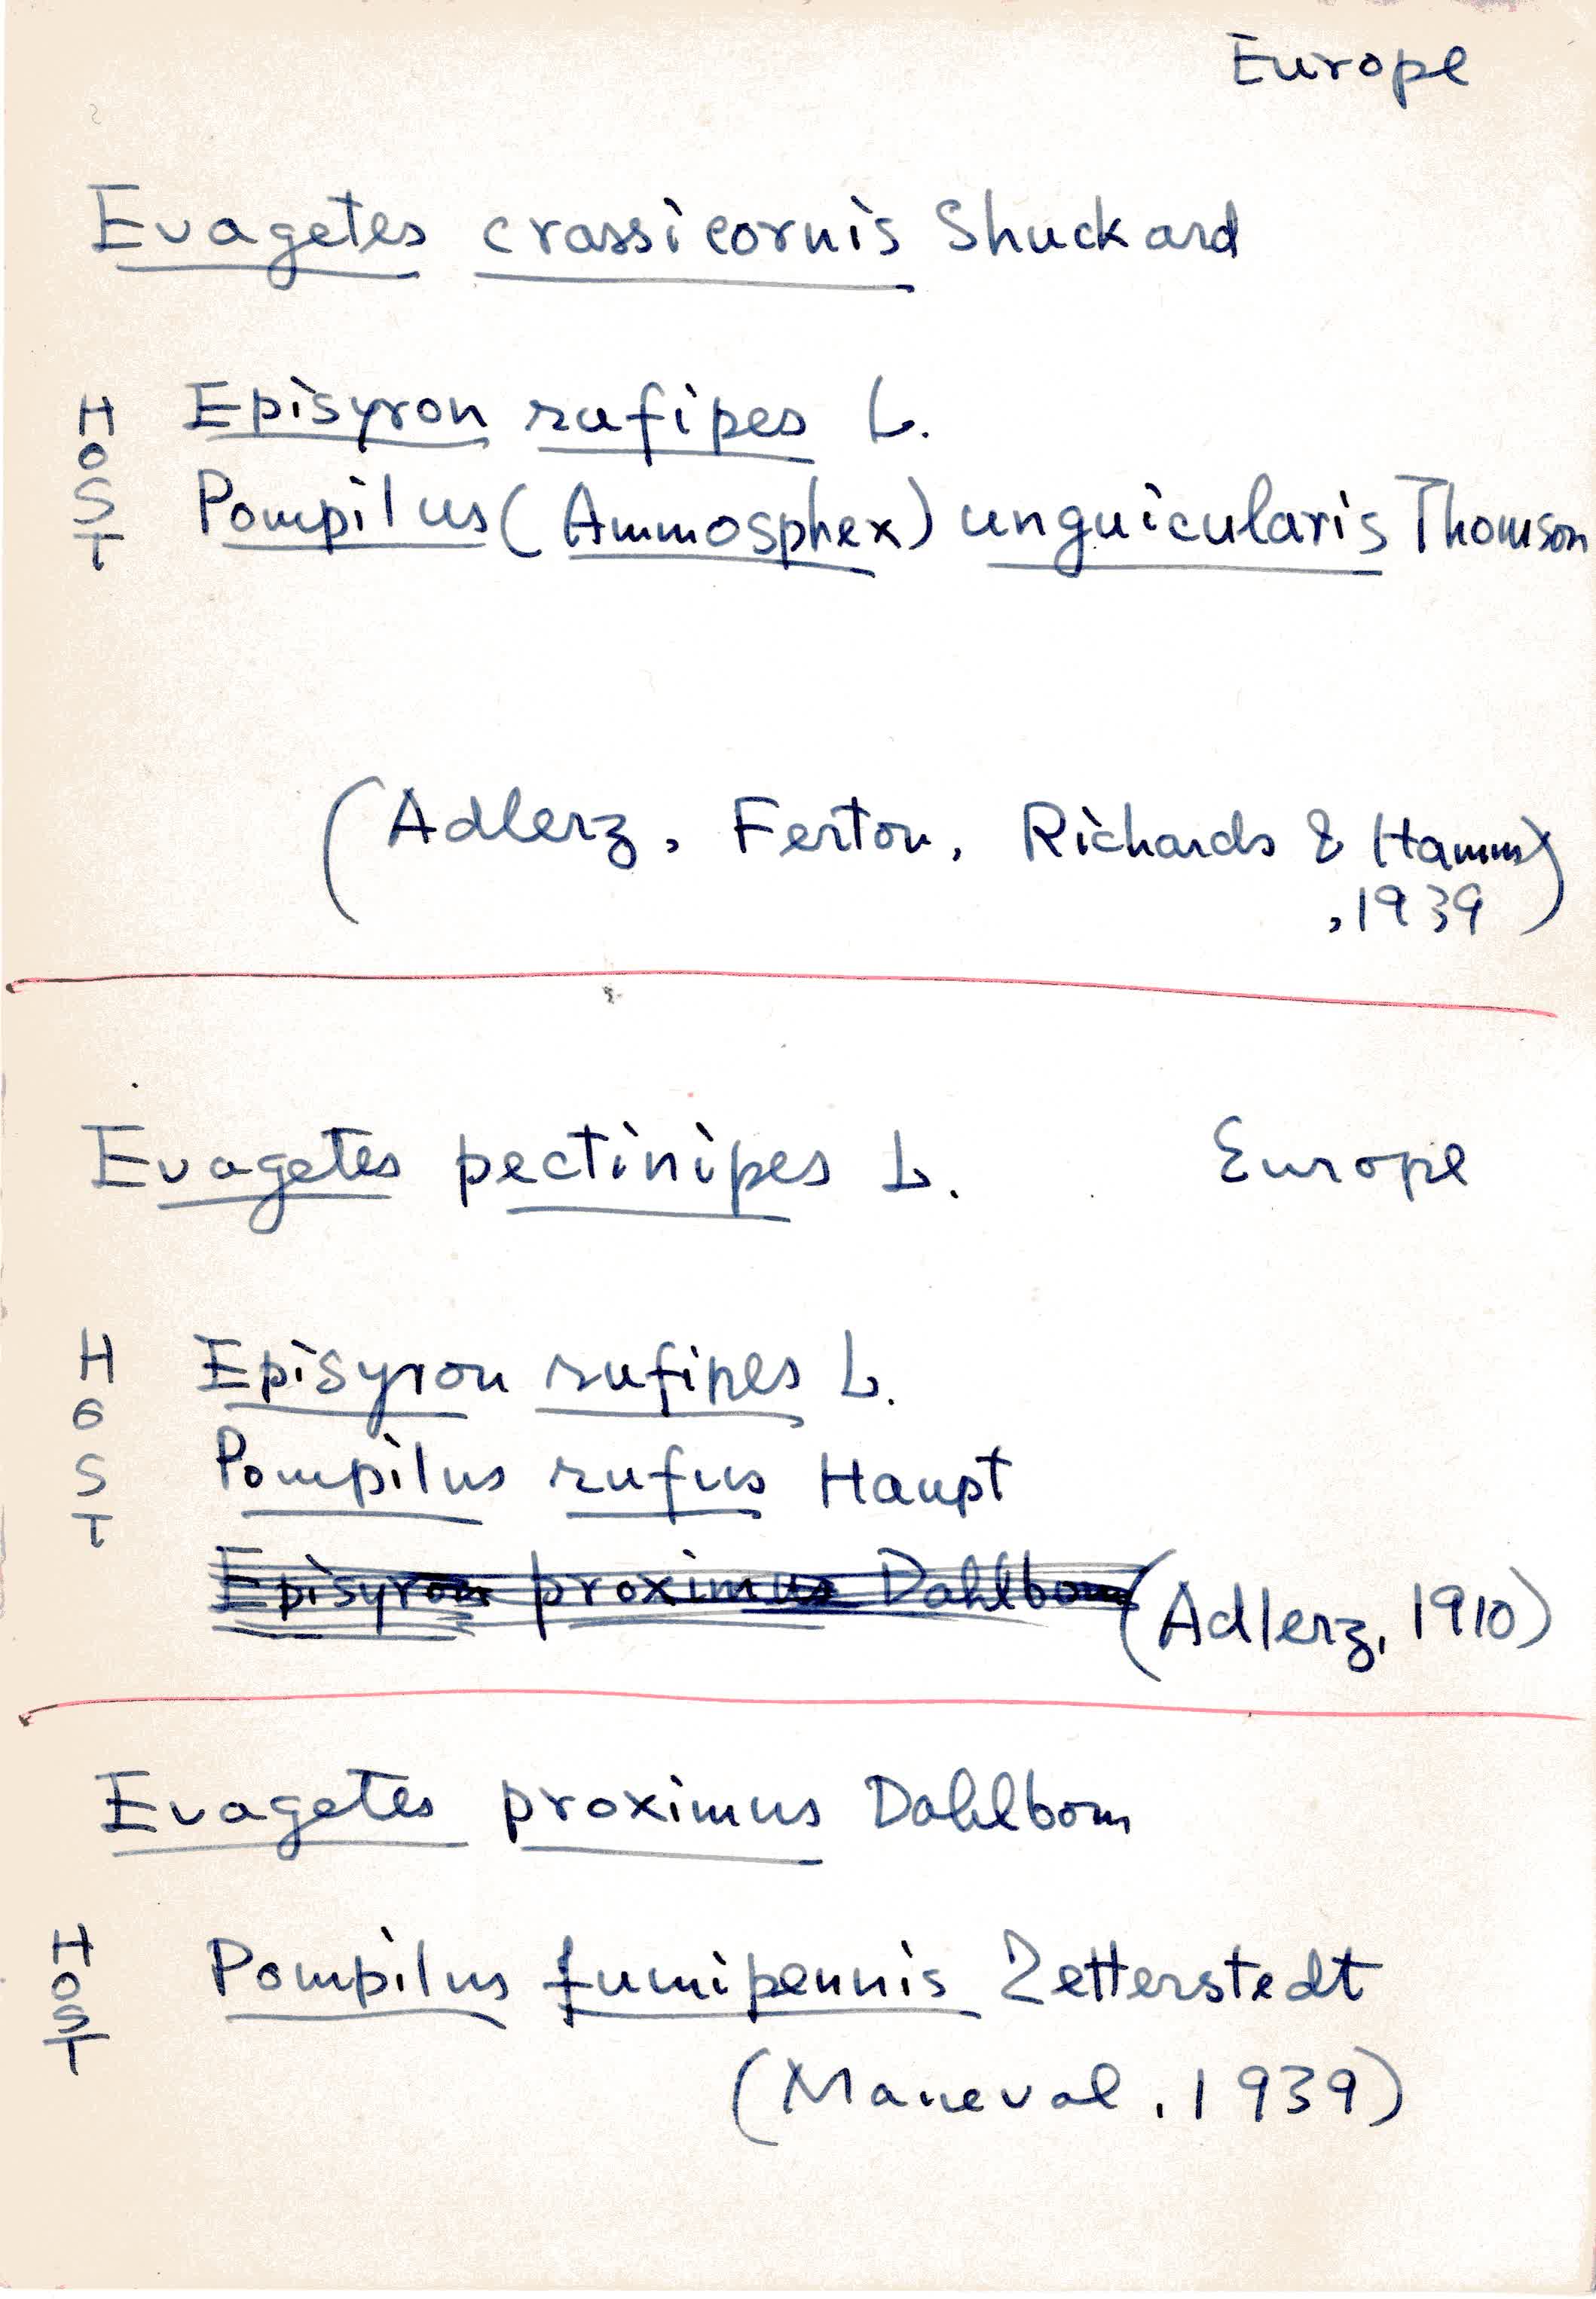 Europe
Evagetes crassicornis Shuckard
HOST
Episyron rufipes L.
Pompilus (Ammosphex) unguicularis Thomson
(Adlerz, Ferton, Richards & Hamm)
, 1939
Evagetes pectinipes L. Europe
HOST
Episyron rufipes L.
Pompilus rufus Haupt
Episyron proximus Dahlbom (Adlerz, 1910)
Evagetes proximus Dahlbom
HOST
Pompilus fumipennis Zetterstedt
(Maneval, 1939)